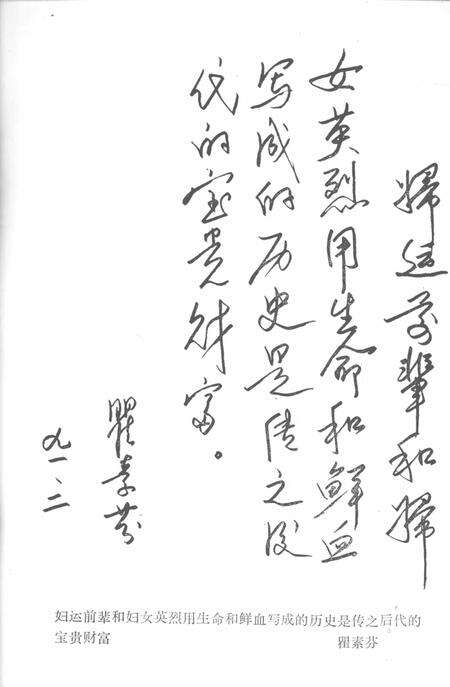 婦运前輩和婦
女英烈用生命和鲜血
写成的历史是传之后
代的宝贵财富。
瞿素芬
九一、二
妇运前辈和妇女英烈用生命和鲜血写成的历史是传之后代的
宝贵财富
瞿素芬